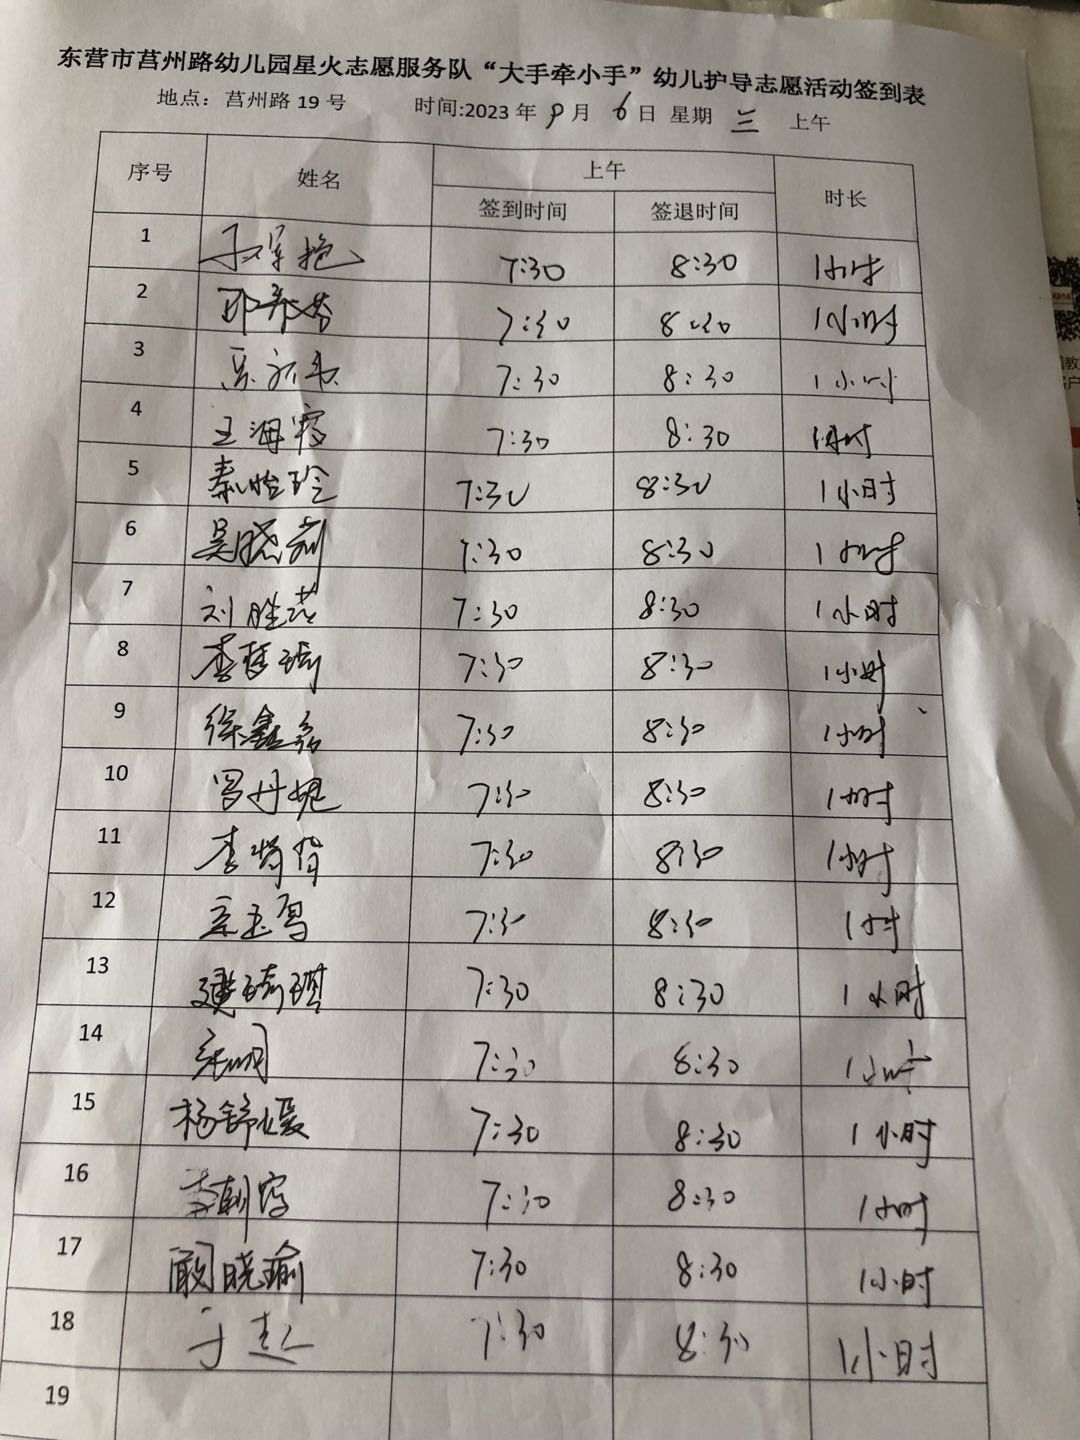 东营市莒州路幼儿园星火志愿服务队“大手牵小手”幼儿护导志愿活动签到表
地点：莒州路 19 号 时间:2023 年 9 月 6 日 星期 三 上午
序号 姓名 上午 时长
签到时间 签退时间
1 7:30 8:30 1小时
2 7:30 8:30 1小时
3 7:30 8:30 1小时
4 王海霞 7:30 8:30 1小时
5 秦怡玲 7:30 8:30 1小时
6 吴晓莉 7:30 8:30 1小时
7 刘胜花 7:30 8:30 1小时
8 7:30 8:30 1小时
9 徐鑫磊 7:30 8:30 1小时
10 罗丹妮 7:30 8:30 1小时
11 7:30 8:30 1小时
12 7:30 8:30 1小时
13 7:30 8:30 1小时
14 张明 7:30 8:30 1小时
15 杨舒媛 7:30 8:30 1小时
16 李朝霞 7:30 8:30 1小时
17 阚晓瑜 7:30 8:30 1小时
18 7:30 8:30 1小时
19